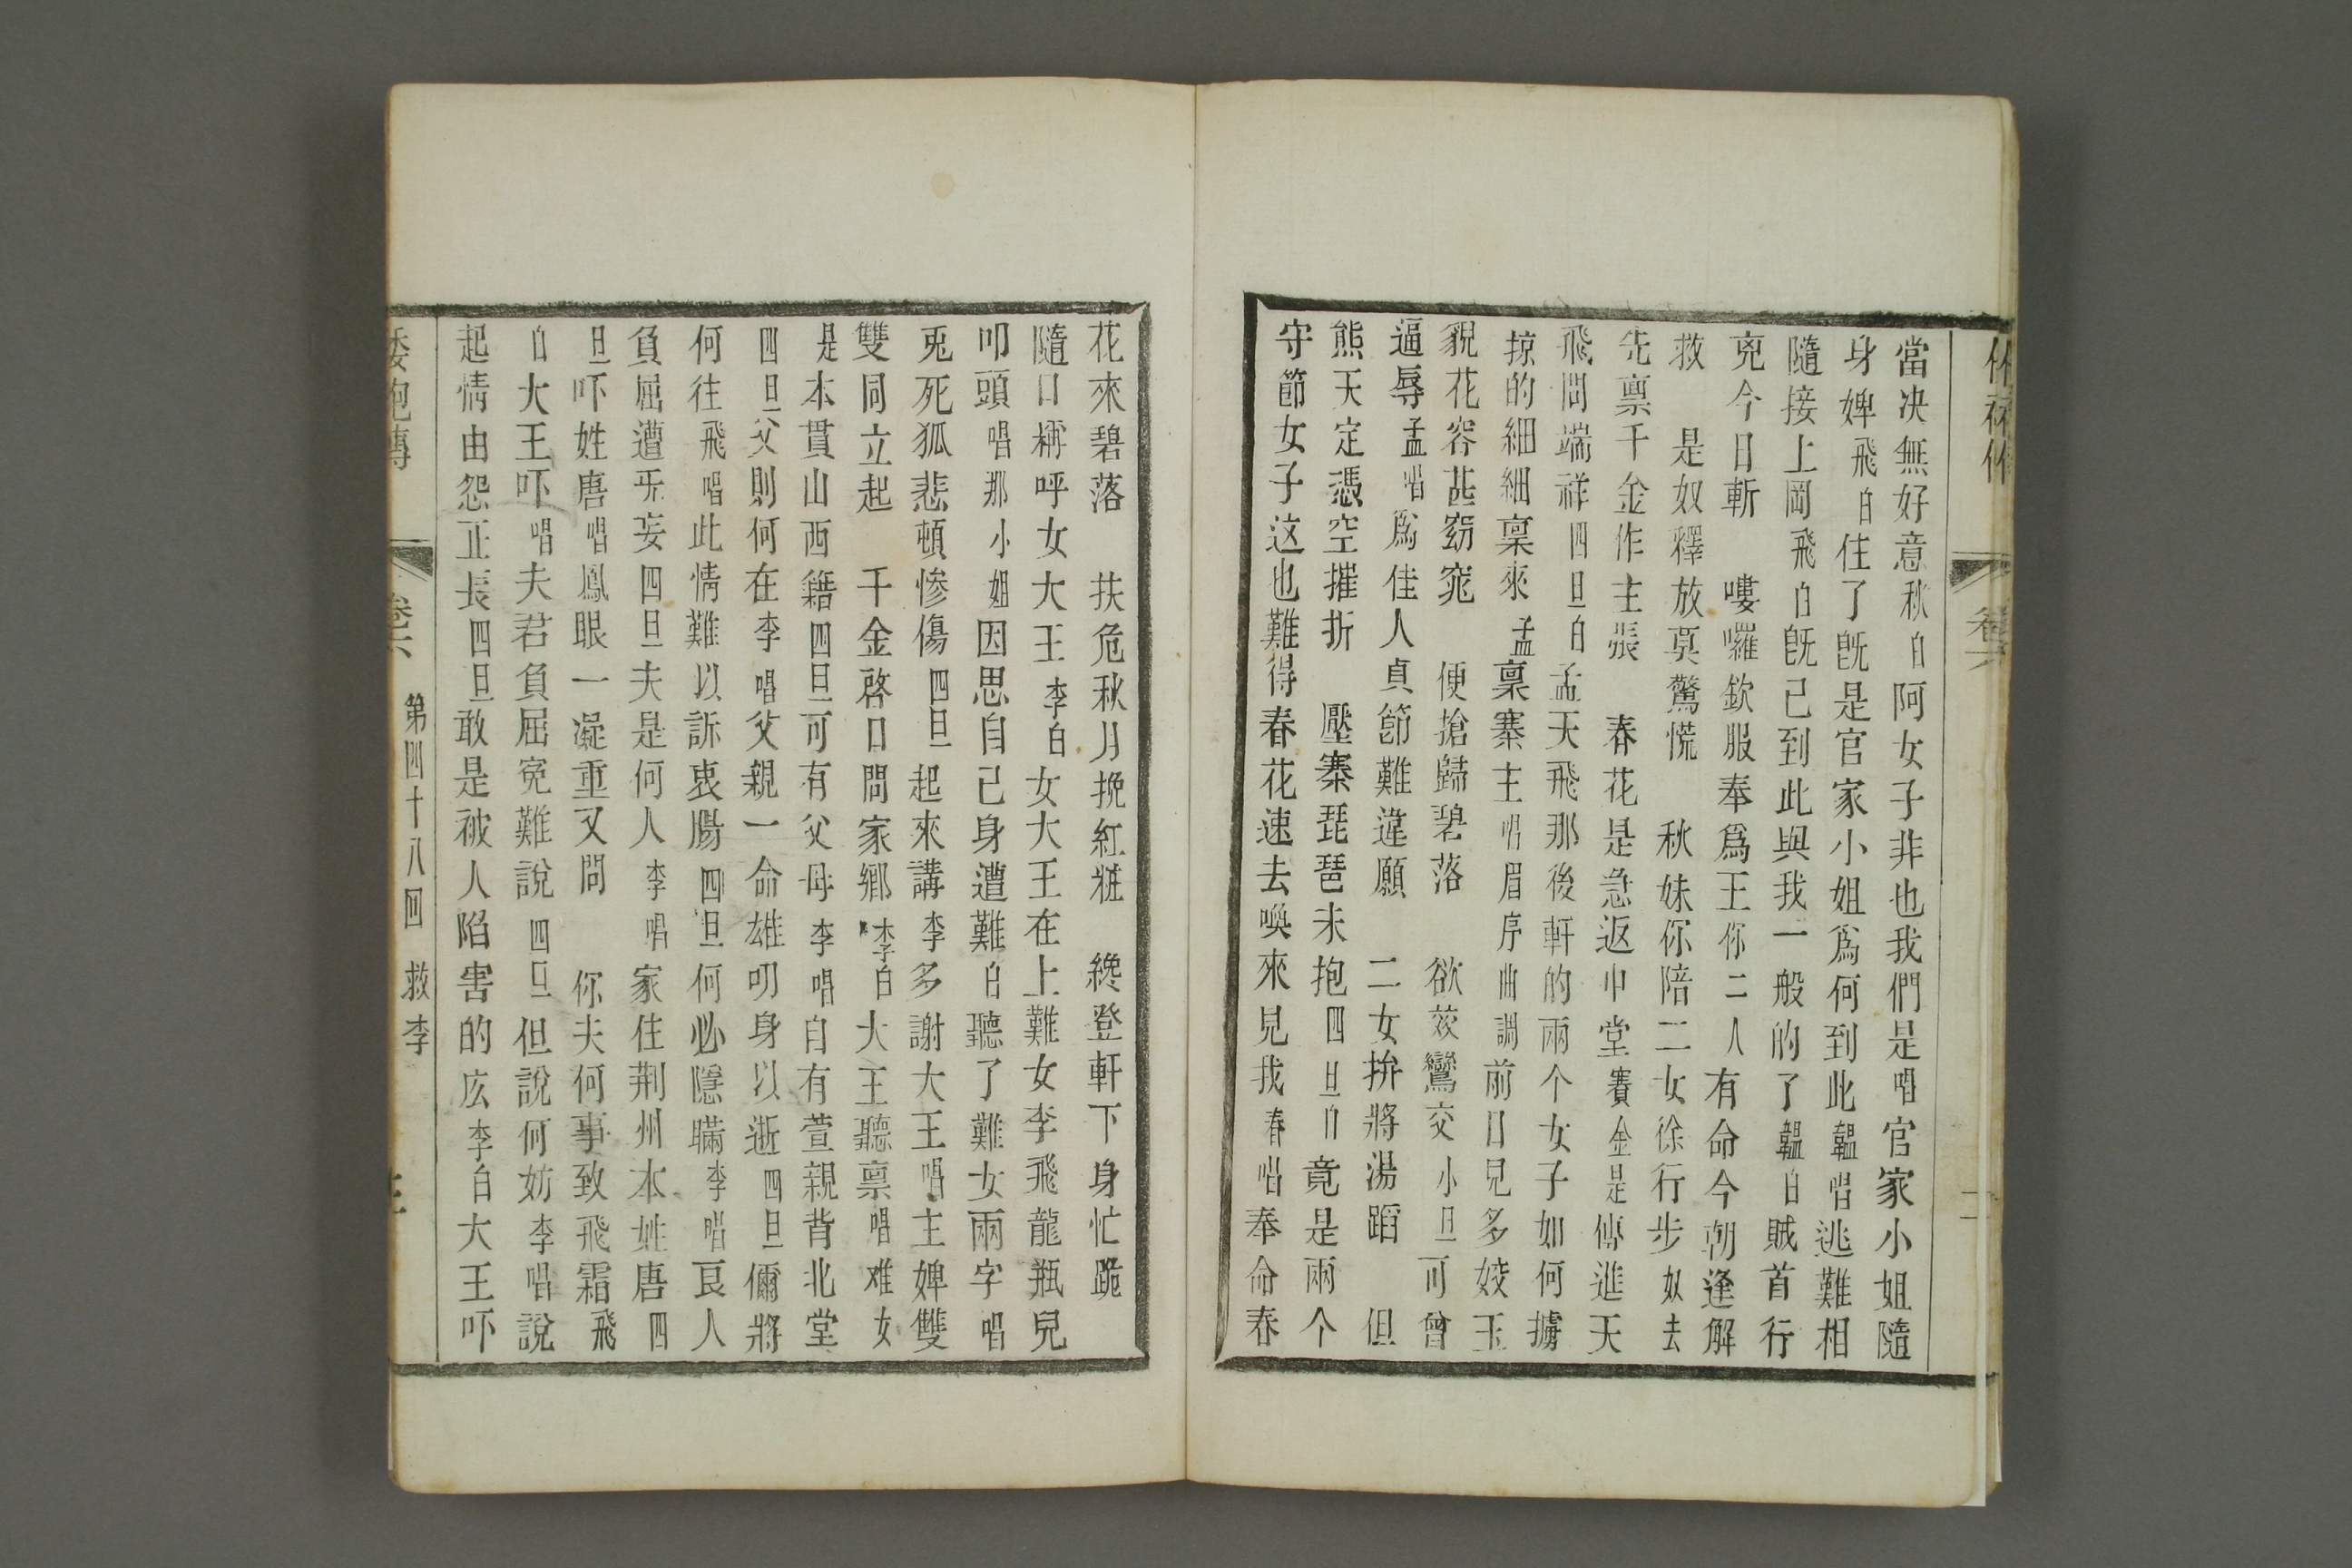 當决無好意秋白阿女子非也我們是唱官家小姐隨
身婢飛白住了旣是官家小姐爲何到此韞唱逃難相
隨接上岡飛白旣已到此與我一般的了韞白賊首行
兇今日斬 嘍囉欽服奉爲王你二人有命今朝逢解
救 是奴釋放莫驚慌 秋妹你陪二女徐行步奴去
先禀千金作主張 春花是急返中堂賽金是傳進天
飛問端祥四旦白孟天飛那後軒的兩个女子如何擄
掠的細細稟來孟稟寨主唱眉序曲調前日兒多姣玉
貌花容甚窈窕 便搶歸碧落 欲效鸞交小旦可曾
逼辱孟唱爲佳人貞節難違願 二女拚將湯蹈 但
熊天定憑空摧折 壓寨琵琶未抱四旦白竟是兩个
守節女子这也難得春花速去喚來見我春唱奉命春
花來碧落 扶危秋月挽紅粧 纔登軒下身忙跪
隨口稱呼女大王李白女大王在上難女李飛龍瓶兒
叩頭唱那小姐因思自己身遭難白聽了難女兩字唱
兎死狐悲頓慘傷四旦起來講李多謝大王唱主婢雙
雙同立起 千金啓口問家鄉李白大王聽禀唱难女
是本貫山西籍四旦可有父母李唱自有萱親背北堂
四旦父則何在李唱父親一命雄叨身以逝四旦儞將
何往飛唱此情難以訴衷腸四旦何必隱瞞李唱良人
負屈遭旡妄四旦夫是何人李唱家住荆州本姓唐四
旦吓姓唐唱鳳眼一凝重又問 你夫何事致飛霜飛
白大王吓唱夫君負屈寃難說四旦但說何妨李唱說
起情由怨正長四旦敢是被人陷害的庅李白大王吓
倭袍傳 卷六 第四十八回 救李